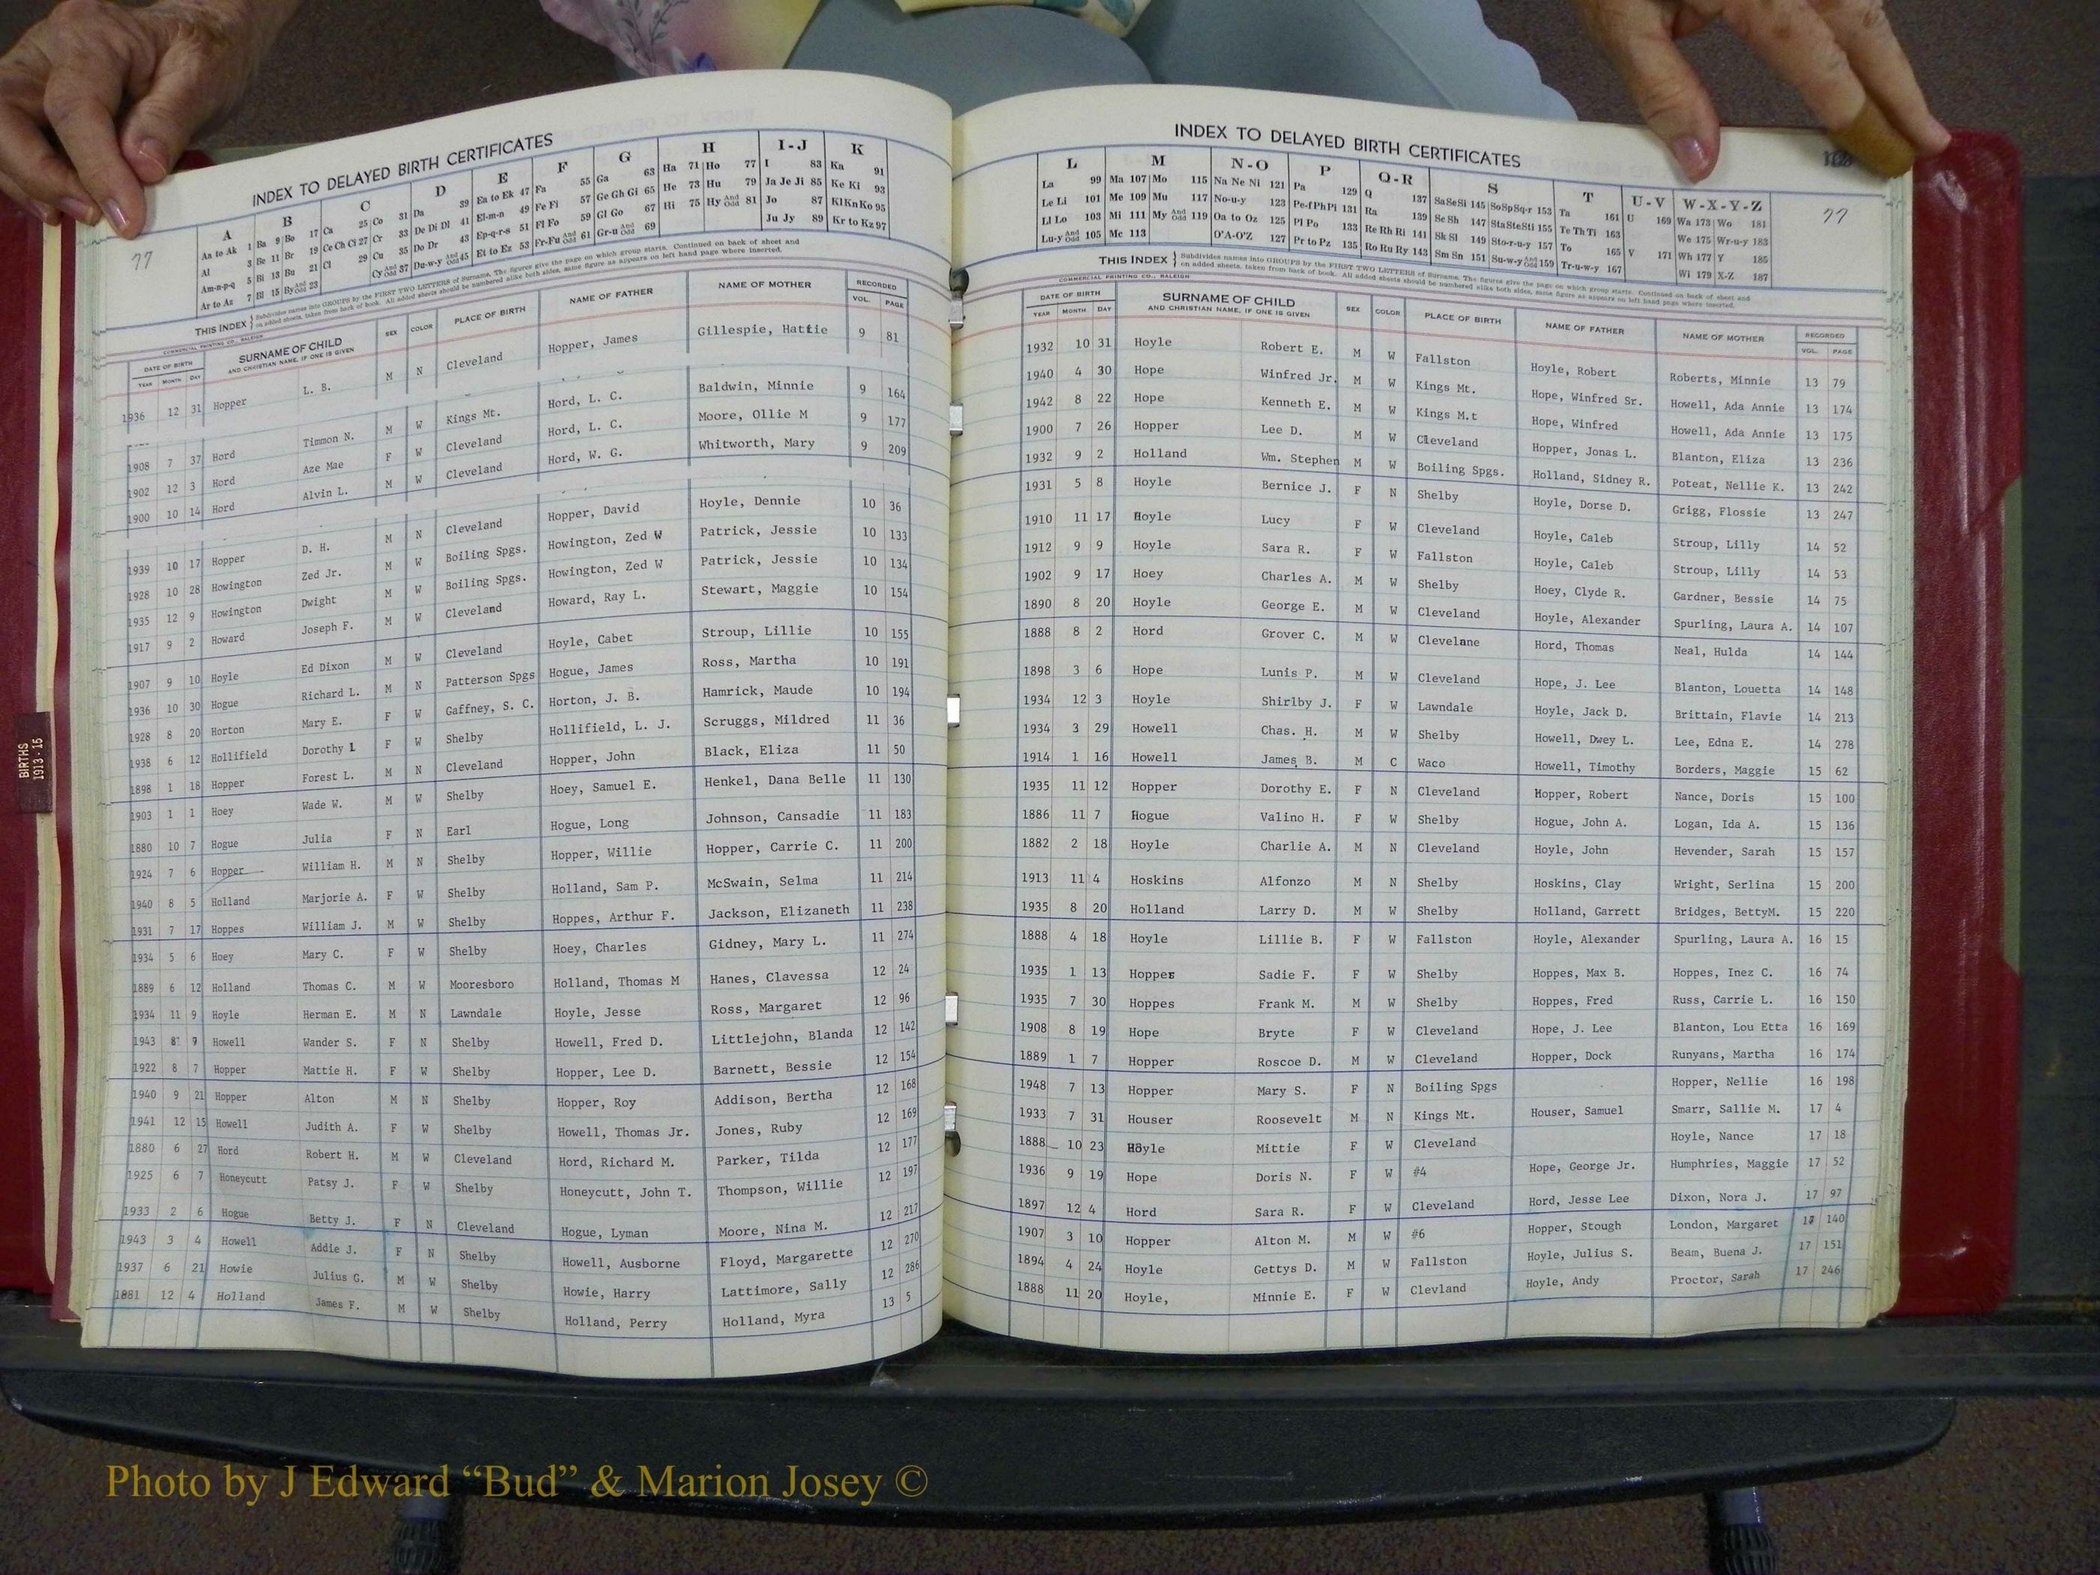 INDEX TO DELAYED BIRTH CERTIFICATES
77
A
Aa to Ak 1
Al 3
Am-n-p-q 5
Ar to Az 7
B
Ba 9 Bo 17
Be 11 Br 19
Bi 13 Bu 21
Bl 15 By And Odd 23
C
Ca 25 Co 31
Ce Ch Ci 27 Cr 33
Cl 29 Cu 35
Cy And Odd 37
D
Da 39
De Di Dl 41
Do Dr 43
Du-w-y And Odd 45
E
Ea to Ek 47
El-m-n 49
Ep-q-r-s 51
Et to Ez 53
F
Fa 55
Fe Fi 57
Fl Fo 59
Fr-Fu And Odd 61
G
Ga 63
Ge Gh Gi 65
Gl Go 67
Gr-u And Odd 69
H
Ha 71 Ho 77
He 73 Hu 79
Hi 75 Hy And Odd 81
I-J
I 83
Ja Je Ji 85
Jo 87
Ju Jy 89
K
Ka 91
Ke Ki 93
Kl Kn Ko 95
Kr to Kz 97
THIS INDEX { Subdivides names into GROUPS by the FIRST TWO LETTERS of Surname. The figures give the page on which group starts. Continued on back of sheet and
on added sheets, taken from back of book. All added sheets should be numbered alike both sides, same figure as appears on left hand page where inserted.
COMMERCIAL PRINTING CO., RALEIGH
DATE OF BIRTH
YEAR MONTH DAY
SURNAME OF CHILD
AND CHRISTIAN NAME, IF ONE IS GIVEN
SEX COLOR PLACE OF BIRTH NAME OF FATHER NAME OF MOTHER RECORDED
VOL. PAGE
1936 12 31 Hopper L. B. M N Cleveland Hopper, James Gillespie, Hattie 9 81
1908 7 37 Hord Timmon N. M W Kings Mt. Hord, L. C. Baldwin, Minnie 9 164
1902 12 3 Hord Aze Mae F W Cleveland Hord, L. C. Moore, Ollie M 9 177
1900 10 14 Hord Alvin L. M W Cleveland Hord, W. G. Whitworth, Mary 9 209
1939 10 17 Hopper D. H. M N Cleveland Hopper, David Hoyle, Dennie 10 36
1928 10 28 Howington Zed Jr. M W Boiling Spgs. Howington, Zed W Patrick, Jessie 10 133
1935 12 9 Howington Dwight M W Boiling Spgs. Howington, Zed W Patrick, Jessie 10 134
1917 9 2 Howard Joseph F. M W Cleveland Howard, Ray L. Stewart, Maggie 10 154
1907 9 10 Hoyle Ed Dixon M W Cleveland Hoyle, Cabet Stroup, Lillie 10 155
1936 10 30 Hogue Richard L. M N Patterson Spgs Hogue, James Ross, Martha 10 191
1928 8 20 Horton Mary E. F W Gaffney, S. C. Horton, J. B. Hamrick, Maude 10 194
1938 6 12 Hollifield Dorothy L F W Shelby Hollifield, L. J. Scruggs, Mildred 11 36
1898 1 18 Hopper Forest L. M N Cleveland Hopper, John Black, Eliza 11 50
1903 1 1 Hoey Wade W. M W Shelby Hoey, Samuel E. Henkel, Dana Belle 11 130
1880 10 7 Hogue Julia F N Earl Hogue, Long Johnson, Cansadie 11 183
1924 7 6 Hopper William H. M N Shelby Hopper, Willie Hopper, Carrie C. 11 200
1940 8 5 Holland Marjorie A. F W Shelby Holland, Sam P. McSwain, Selma 11 214
1931 7 17 Hoppes William J. M W Shelby Hoppes, Arthur F. Jackson, Elizaneth 11 238
1934 5 6 Hoey Mary C. F W Shelby Hoey, Charles Gidney, Mary L. 11 274
1889 6 12 Holland Thomas C. M W Mooresboro Holland, Thomas M Hanes, Clavessa 12 24
1934 11 9 Hoyle Herman E. M N Lawndale Hoyle, Jesse Ross, Margaret 12 96
1943 8 9 Howell Wander S. F N Shelby Howell, Fred D. Littlejohn, Blanda 12 142
1922 8 7 Hopper Mattie H. F W Shelby Hopper, Lee D. Barnett, Bessie 12 154
1940 9 21 Hopper Alton M N Shelby Hopper, Roy Addison, Bertha 12 168
1941 12 15 Howell Judith A. F W Shelby Howell, Thomas Jr. Jones, Ruby 12 169
1880 6 27 Hord Robert H. M W Cleveland Hord, Richard M. Parker, Tilda 12 177
1925 6 7 Honeycutt Patsy J. F W Shelby Honeycutt, John T. Thompson, Willie 12 197
1933 2 6 Hogue Betty J. F N Cleveland Hogue, Lyman Moore, Nina M. 12 217
1943 3 4 Howell Addie J. F N Shelby Howell, Ausborne Floyd, Margarette 12 270
1937 6 21 Howie Julius G. M W Shelby Howie, Harry Lattimore, Sally 12 286
1881 12 4 Holland James F. M W Shelby Holland, Perry Holland, Myra 13 5
INDEX TO DELAYED BIRTH CERTIFICATES
77
L
La 99
Le Li 101
Ll Lo 103
Lu-y And Odd 105
M
Ma 107 Mo 115
Me 109 Mu 117
Mi 111 My And Odd 119
Mc 113
N-O
Na Ne Ni 121
No-u-y 123
Oa to Oz 125
O'A-O'Z 127
P
Pa 129
Pe-f Ph Pi 131
Pl Po 133
Pr to Pz 135
Q-R
Q 137
Ra 139
Re Rh Ri 141
Ro Ru Ry 143
S
Sa Se Si 145 So Sp Sq-r 153
Se Sh 147 Sta Ste Sti 155
Sk Sl 149 Sto-r-u-y 157
Sm Sn 151 Su-w-y And Odd 159
T
Ta 161
Te Th Ti 163
To 165
Tr-u-w-y 167
U-V
U 169
V 171
W-X-Y-Z
Wa 173 Wo 181
We 175 Wr-u-y 183
Wh 177 Y 185
Wi 179 X-Z 187
THIS INDEX { Subdivides names into GROUPS by the FIRST TWO LETTERS of Surname. The figures give the page on which group starts. Continued on back of sheet and
on added sheets, taken from back of book. All added sheets should be numbered alike both sides, same figure as appears on left hand page where inserted.
COMMERCIAL PRINTING CO., RALEIGH
DATE OF BIRTH
YEAR MONTH DAY
SURNAME OF CHILD
AND CHRISTIAN NAME, IF ONE IS GIVEN
SEX COLOR PLACE OF BIRTH NAME OF FATHER NAME OF MOTHER RECORDED
VOL. PAGE
1932 10 31 Hoyle Robert E. M W Fallston Hoyle, Robert Roberts, Minnie 13 79
1940 4 30 Hope Winfred Jr. M W Kings Mt. Hope, Winfred Sr. Howell, Ada Annie 13 174
1942 8 22 Hope Kenneth E. M W Kings M.t Hope, Winfred Howell, Ada Annie 13 175
1900 7 26 Hopper Lee D. M W Cleveland Hopper, Jonas L. Blanton, Eliza 13 236
1932 9 2 Holland Wm. Stephen M W Boiling Spgs. Holland, Sidney R. Poteat, Nellie K. 13 242
1931 5 8 Hoyle Bernice J. F N Shelby Hoyle, Dorse D. Grigg, Flossie 13 247
1910 11 17 Hoyle Lucy F W Cleveland Hoyle, Caleb Stroup, Lilly 14 52
1912 9 9 Hoyle Sara R. F W Fallston Hoyle, Caleb Stroup, Lilly 14 53
1902 9 17 Hoey Charles A. M W Shelby Hoey, Clyde R. Gardner, Bessie 14 75
1890 8 20 Hoyle George E. M W Cleveland Hoyle, Alexander Spurling, Laura A. 14 107
1888 8 2 Hord Grover C. M W Clevelane Hord, Thomas Neal, Hulda 14 144
1898 3 6 Hope Lunis P. M W Cleveland Hope, J. Lee Blanton, Louetta 14 148
1934 12 3 Hoyle Shirlby J. F W Lawndale Hoyle, Jack D. Brittain, Flavie 14 213
1934 3 29 Howell Chas. H. M W Shelby Howell, Dwey L. Lee, Edna E. 14 278
1914 1 16 Howell James B. M C Waco Howell, Timothy Borders, Maggie 15 62
1935 11 12 Hopper Dorothy E. F N Cleveland Hopper, Robert Nance, Doris 15 100
1886 11 7 Hogue Valino H. F W Shelby Hogue, John A. Logan, Ida A. 15 136
1882 2 18 Hoyle Charlie A. M N Cleveland Hoyle, John Hevender, Sarah 15 157
1913 11 4 Hoskins Alfonzo M N Shelby Hoskins, Clay Wright, Serlina 15 200
1935 8 20 Holland Larry D. M W Shelby Holland, Garrett Bridges, BettyM. 15 220
1888 4 18 Hoyle Lillie B. F W Fallston Hoyle, Alexander Spurling, Laura A. 16 15
1935 1 13 Hoppes Sadie F. F W Shelby Hoppes, Max B. Hoppes, Inez C. 16 74
1935 7 30 Hoppes Frank M. M W Shelby Hoppes, Fred Russ, Carrie L. 16 150
1908 8 19 Hope Bryte F W Cleveland Hope, J. Lee Blanton, Lou Etta 16 169
1889 1 7 Hopper Roscoe D. M W Cleveland Hopper, Dock Runyans, Martha 16 174
1948 7 13 Hopper Mary S. F N Boiling Spgs Hopper, Nellie 16 198
1933 7 31 Houser Roosevelt M N Kings Mt. Houser, Samuel Smarr, Sallie M. 17 4
1888 10 23 Hoyle Mittie F W Cleveland Hoyle, Nance 17 18
1936 9 19 Hope Doris N. F W #4 Hope, George Jr. Humphries, Maggie 17 52
1897 12 4 Hord Sara R. F W Cleveland Hord, Jesse Lee Dixon, Nora J. 17 97
1907 3 10 Hopper Alton M. M W #6 Hopper, Stough London, Margaret 17 140
1894 4 24 Hoyle Gettys D. M W Fallston Hoyle, Julius S. Beam, Buena J. 17 151
1888 11 20 Hoyle, Minnie E. F W Clevland Hoyle, Andy Proctor, Sarah 17 246
BIRTHS
1913-15
Photo by J Edward “Bud” & Marion Josey ©